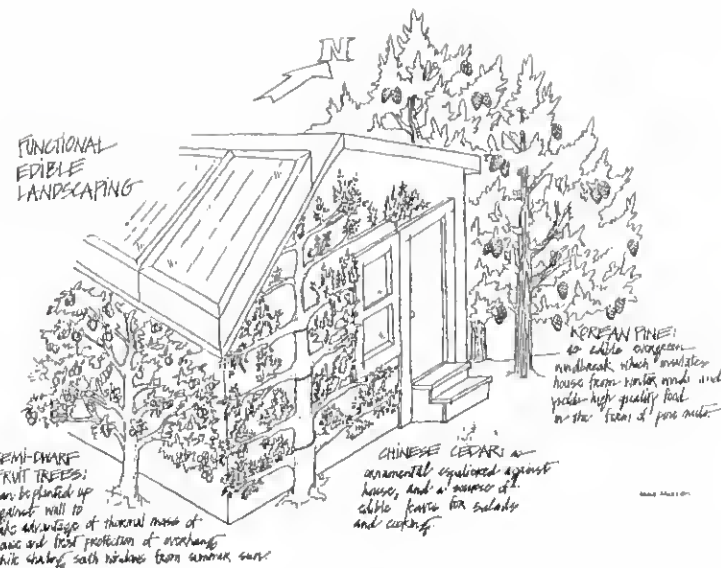 N
FUNCTIONAL
EDIBLE
LANDSCAPING
KOREAN PINE:
an edible evergreen
windbreak which insulates
house from winter winds and
yields high quality food
in the form of pine nuts
CHINESE CEDAR: an
ornamental espaliered against
house, and a source of
edible leaves for salads
and cooking
SEMI-DWARF
FRUIT TREES:
can be planted up
against wall to
take advantage of thermal mass of
house and frost protection of overhang
while shading south windows from summer sun